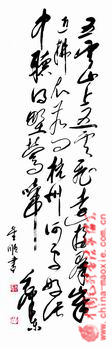 五雲山上五雲飛遠接群峰
近拂堤若问杭州何处好此
中聽得野莺啼
www.china-maoxie.com